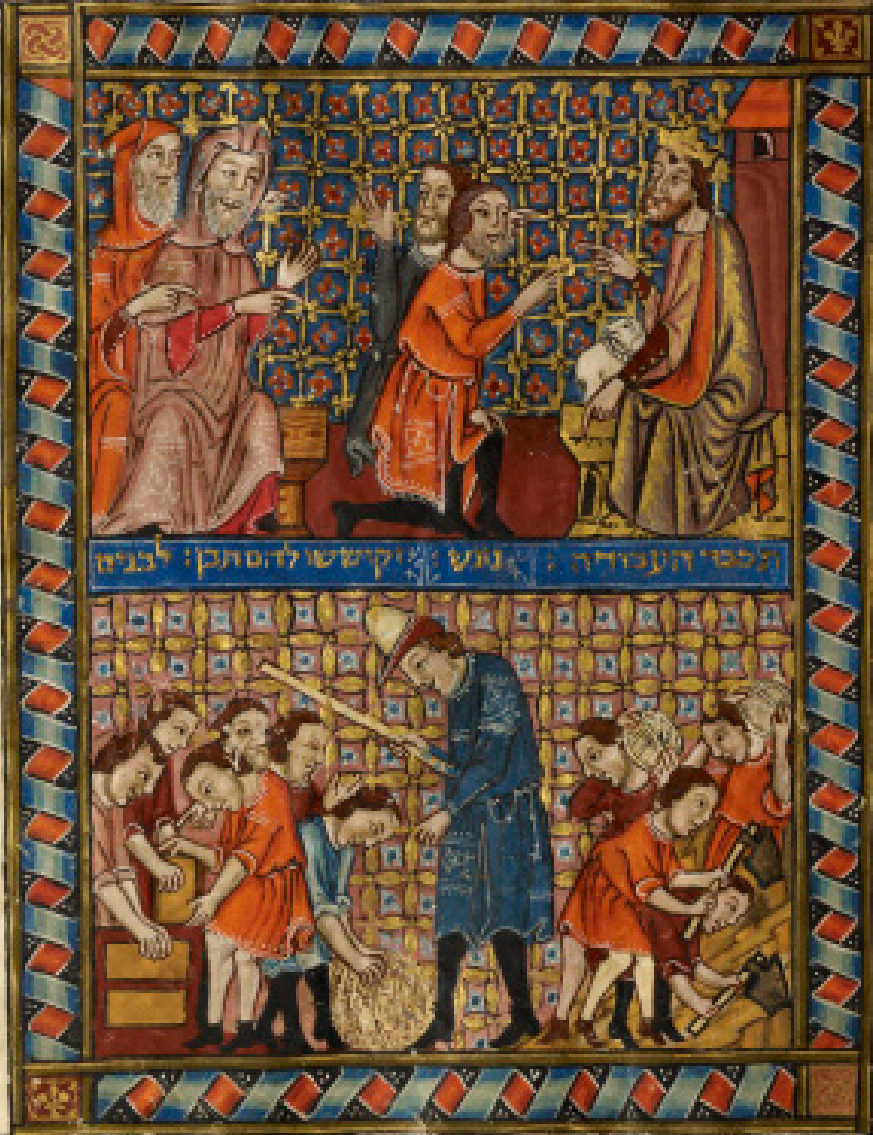 תכבד העבודה : נוגש ויקוששו להם תבן : לבנים